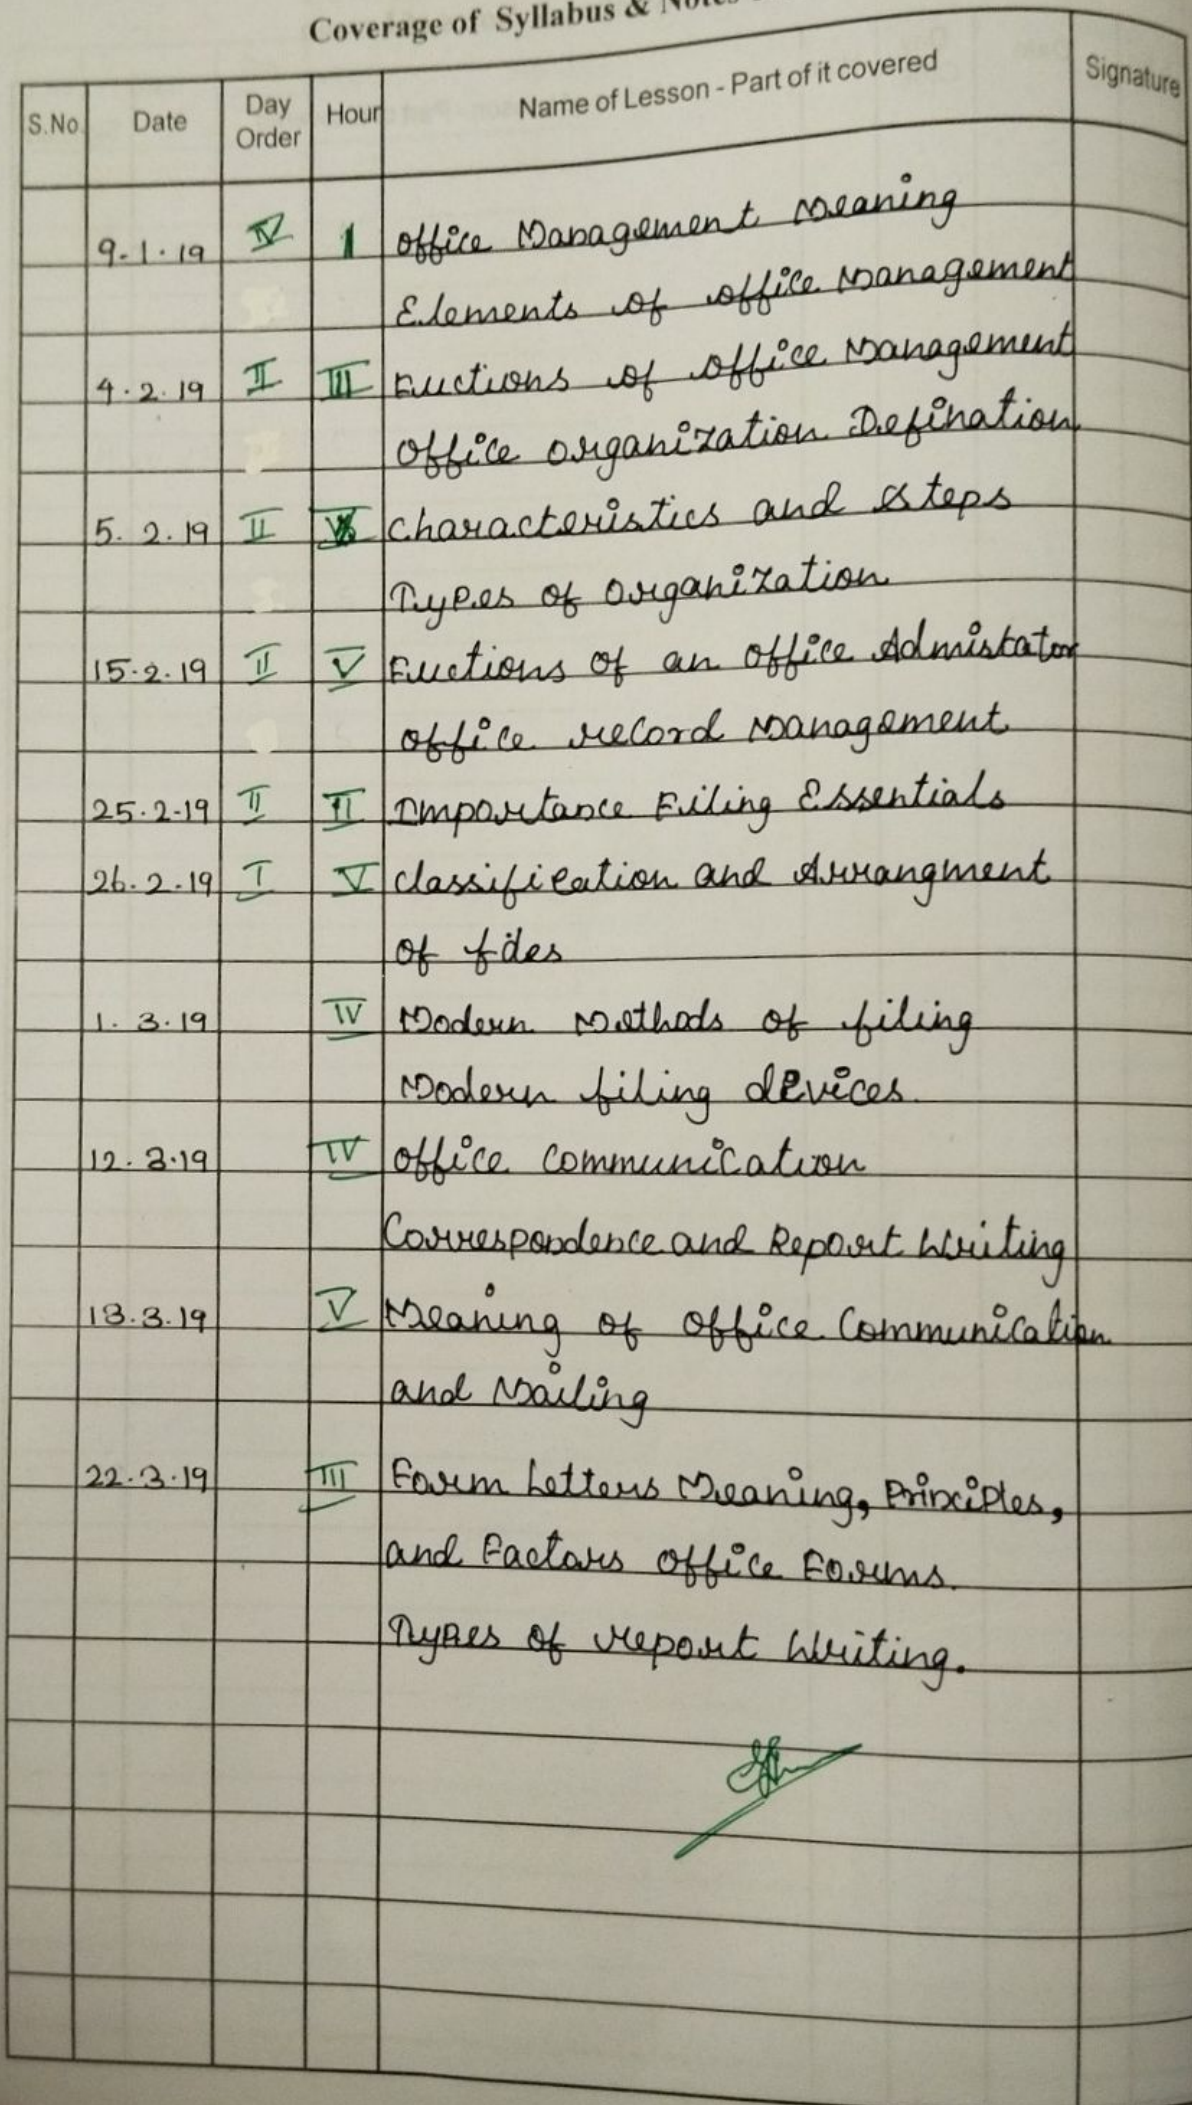 Coverage of Syllabus &
S.No. Date Day Order Hour Name of Lesson - Part of it covered Signature
9.1.19 IV I Office Management Meaning
Elements of office Management
4.2.19 II III Fuctions of office Management
Office organization Defination
5.2.19 II Characteristics and steps
Types of organization
15.2.19 II V Fuctions of an office Admistator
office record Management
25.2.19 II II Importance Filing Essentials
26.2.19 I V Classification and Arrangment
of files
1.3.19 IV Modern Methods of filing
Modern filing devices.
12.3.19 IV Office Communication
Correspondence and Report Writing
13.3.19 V Meaning of office Communication
and Mailing
22.3.19 III Form Letters Meaning, Principles,
and Factors office Forms.
Types of report Writing.